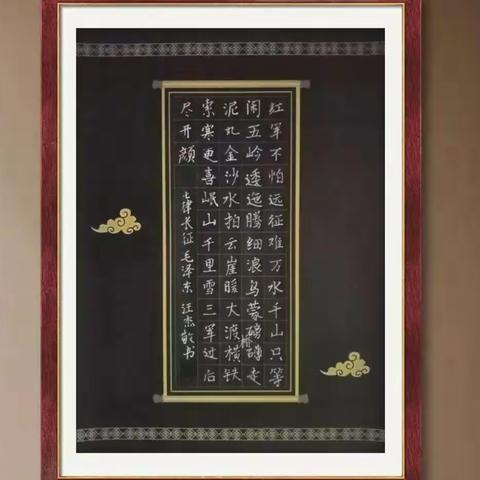 红军不怕远征难万水千山只等
闲五岭逶迤腾细浪乌蒙磅礴走
泥丸金沙水拍云崖暖大渡桥横铁
索寒更喜岷山千里雪三军过后
尽开颜
七律长征 毛泽东 汪杰敬书